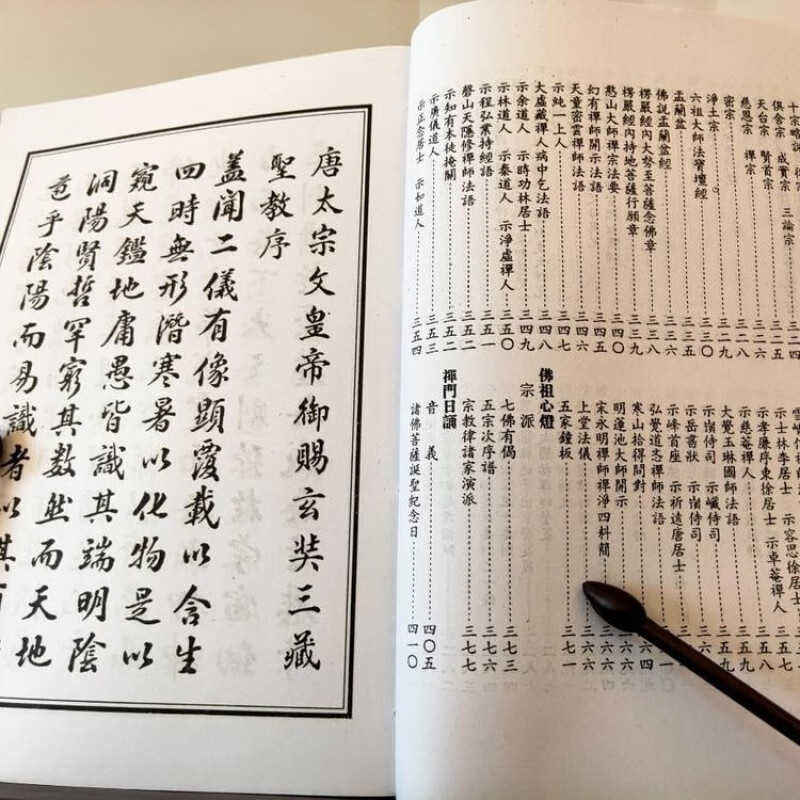 十宗略論
俱舍宗 成實宗 三論宗
天台宗 賢首宗
慈恩宗 禪宗
密宗
淨土宗
六祖大師法寶壇經
盂蘭盆
佛說盂蘭盆經
楞嚴經內大勢至菩薩念佛章
楞嚴經內持地菩薩行願章
憨山大師禪宗法要 三四〇
幻有禪師開示法語 三四五
天童密雲禪師法語 三四六
示純一上人 三四七
大虛藏禪人病中乞法語 三四八
示余道人 示時功林居士 三四九
示林道人 示秦道人 示淨虛禪人 三五〇
示程弘業持經語 三五一
磬山天隱修禪師法語 三五二
示知有本徒掩關 三五二
示廣儀道人 三五三
示正念居士 示知道人 三五四
示士林李居士 示容思徐居士
示孝廉序東徐居士 示卓菴禪人 三五八
示慈菴禪人 三五九
大覺玉琳國師法語
示嵛侍司 示巘侍司
示岳書狀 示嵛侍司
示峰首座 示祈遠唐居士
弘覺道忞禪師法語
寒山拾得問對
明蓮池大師開示
宋永明禪師禪淨四料簡
上堂法儀
五家鐘板 三七一
佛祖心燈
宗派
七佛有偈 三七三
五宗次序譜 三七六
宗教律諸家演派 三七七
禪門日誦
音義 四〇五
諸佛菩薩誕聖紀念日 四一〇
唐太宗文皇帝御賜玄奘三藏
聖教序
蓋聞二儀有像顯覆載以含生
四時無形潛寒暑以化物是以
窺天鑑地庸愚皆識其端明陰
洞陽賢哲罕窮其數然而天地
苞乎陰陽而易識者以其有